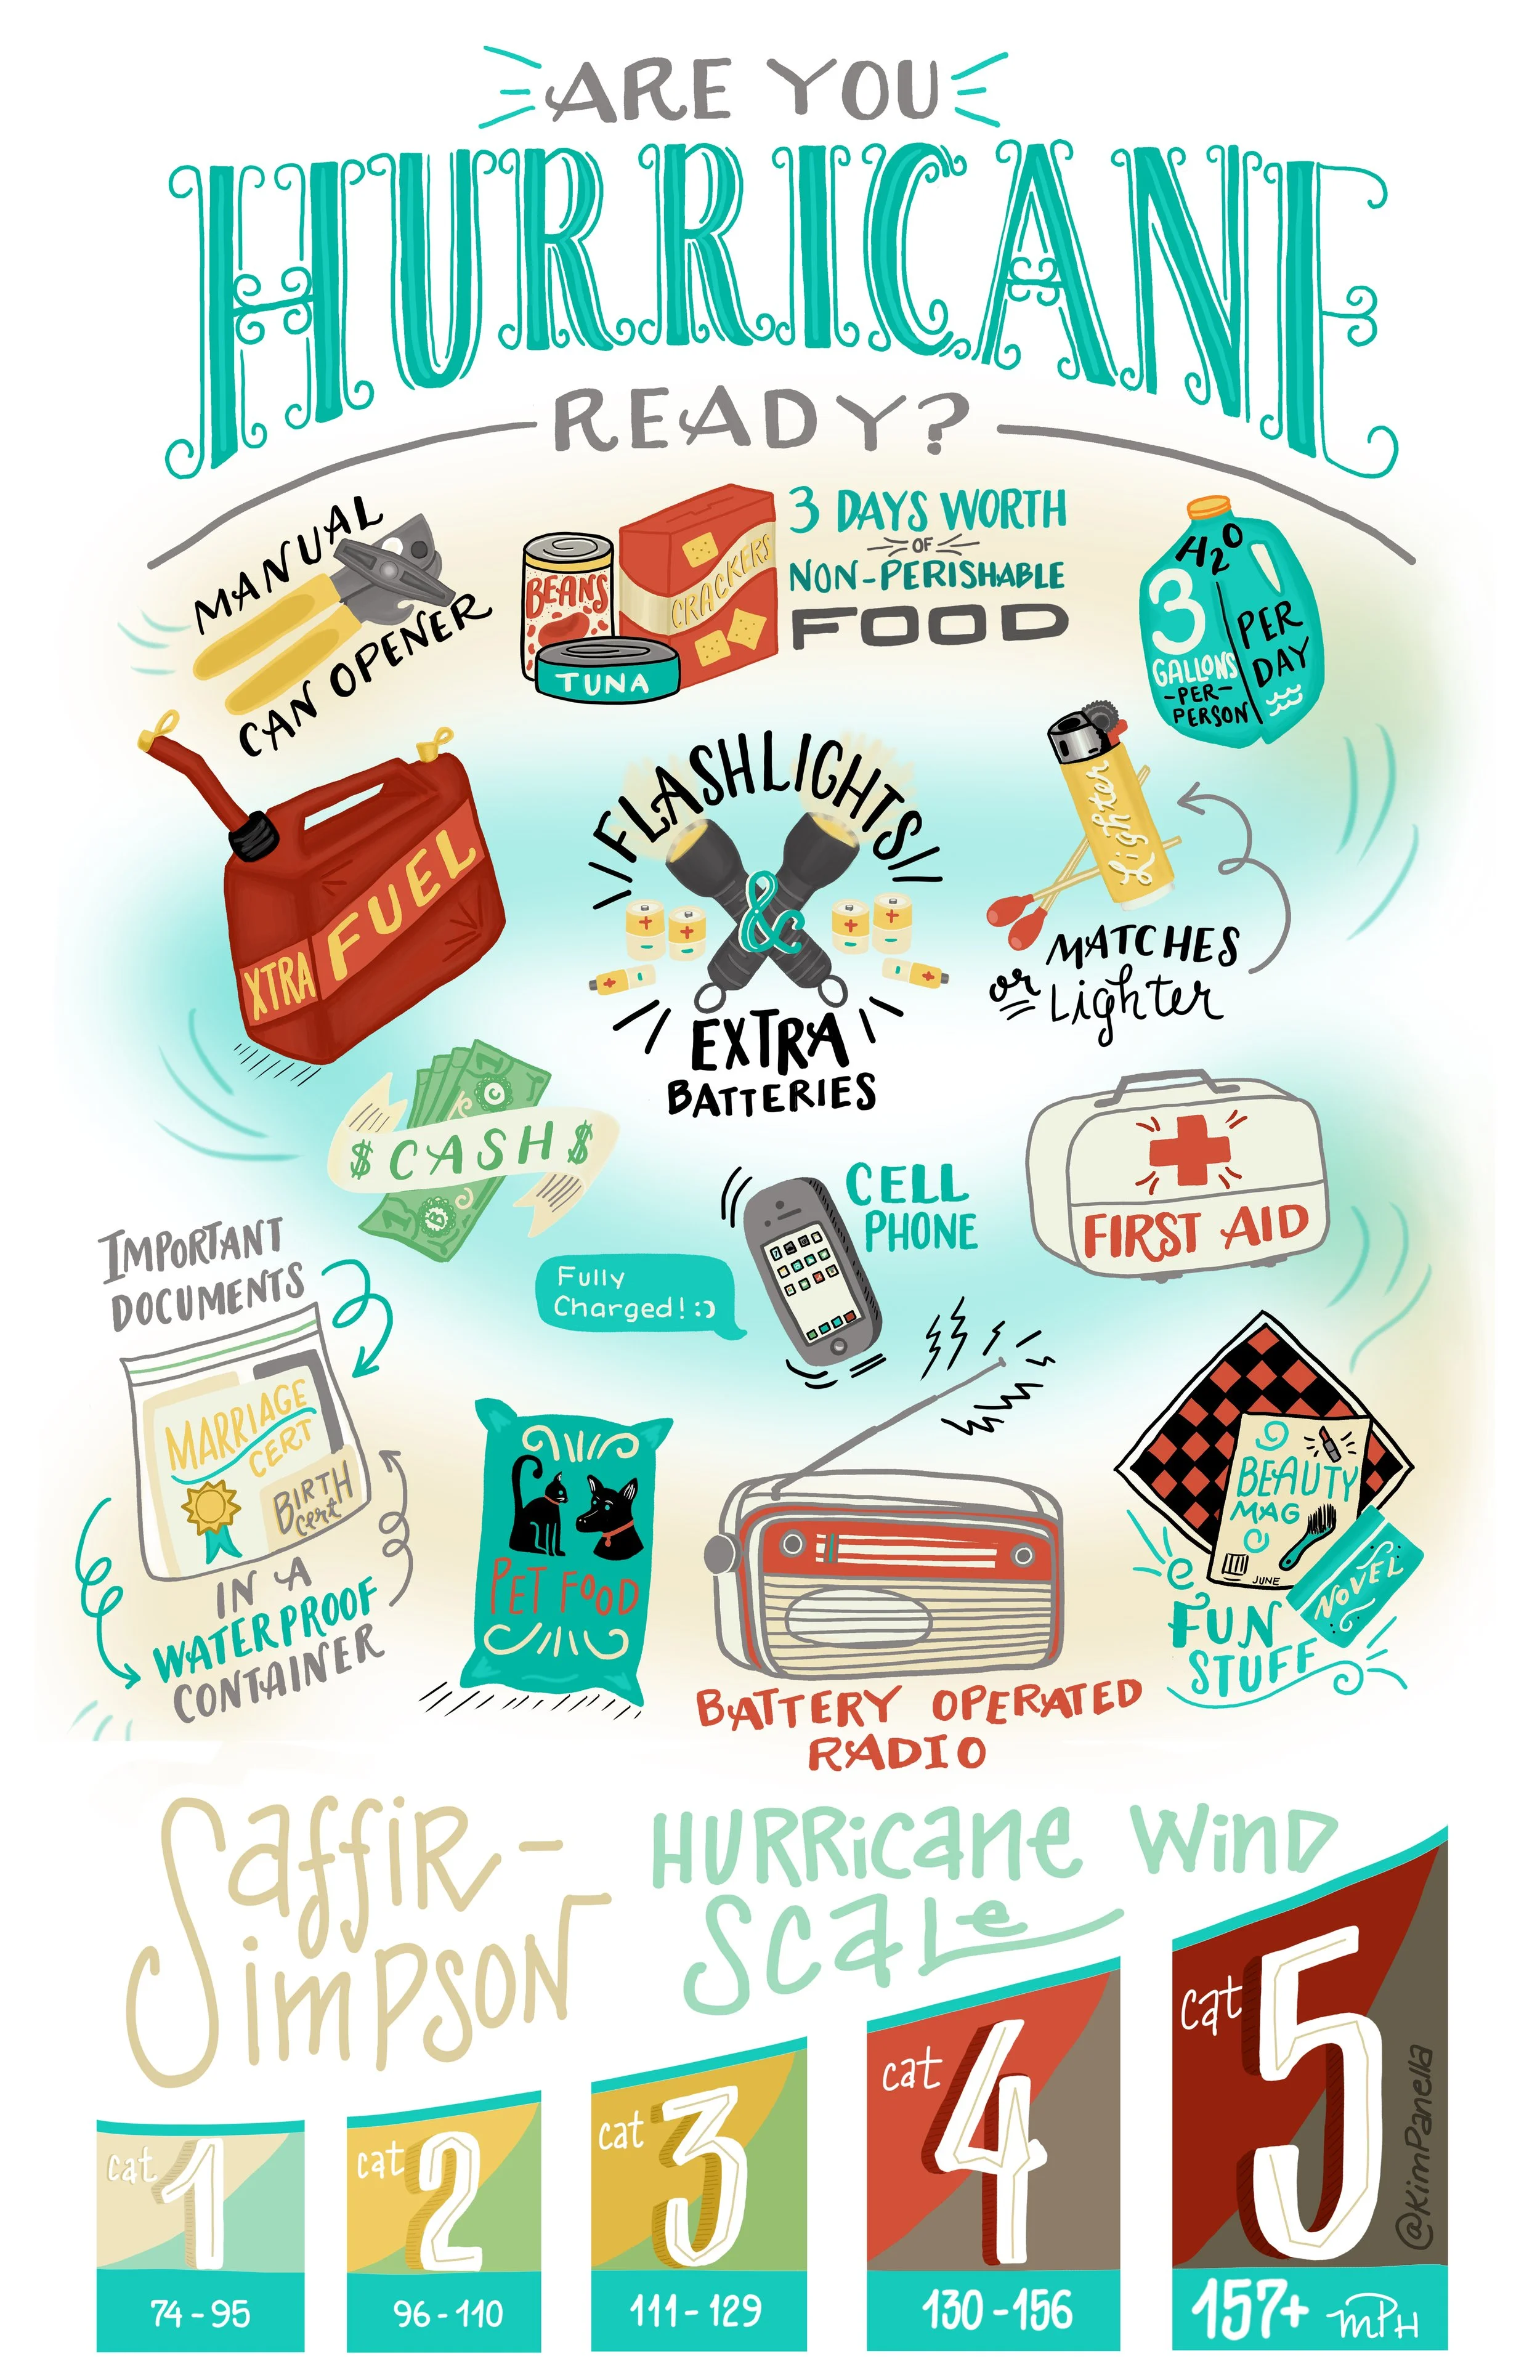 ARE YOU
HURRICANE
READY?
MANUAL
CAN OPENER
BEANS
TUNA
CRACKERS
3 DAYS WORTH
OF
NON-PERISHABLE
FOOD
H2O
3
GALLONS
-PER-
PERSON
PER
DAY
XTRA
FUEL
FLASHLIGHTS
&
EXTRA
BATTERIES
Lighter
MATCHES
or Lighter
$ CASH $
CELL
PHONE
Fully
Charged! :)
FIRST AID
IMPORTANT
DOCUMENTS
MARRIAGE
CERT
BIRTH
cert
IN A
WATERPROOF
CONTAINER
PET FOOD
BATTERY OPERATED
RADIO
BEAUTY
MAG
JUNE
NOVEL
FUN
STUFF
Saffir-
Simpson
HURRicane WinD
Scale
cat 1
74 - 95
cat 2
96 - 110
cat 3
111 - 129
cat 4
130 - 156
cat 5
157+ mPH
@KimPanella